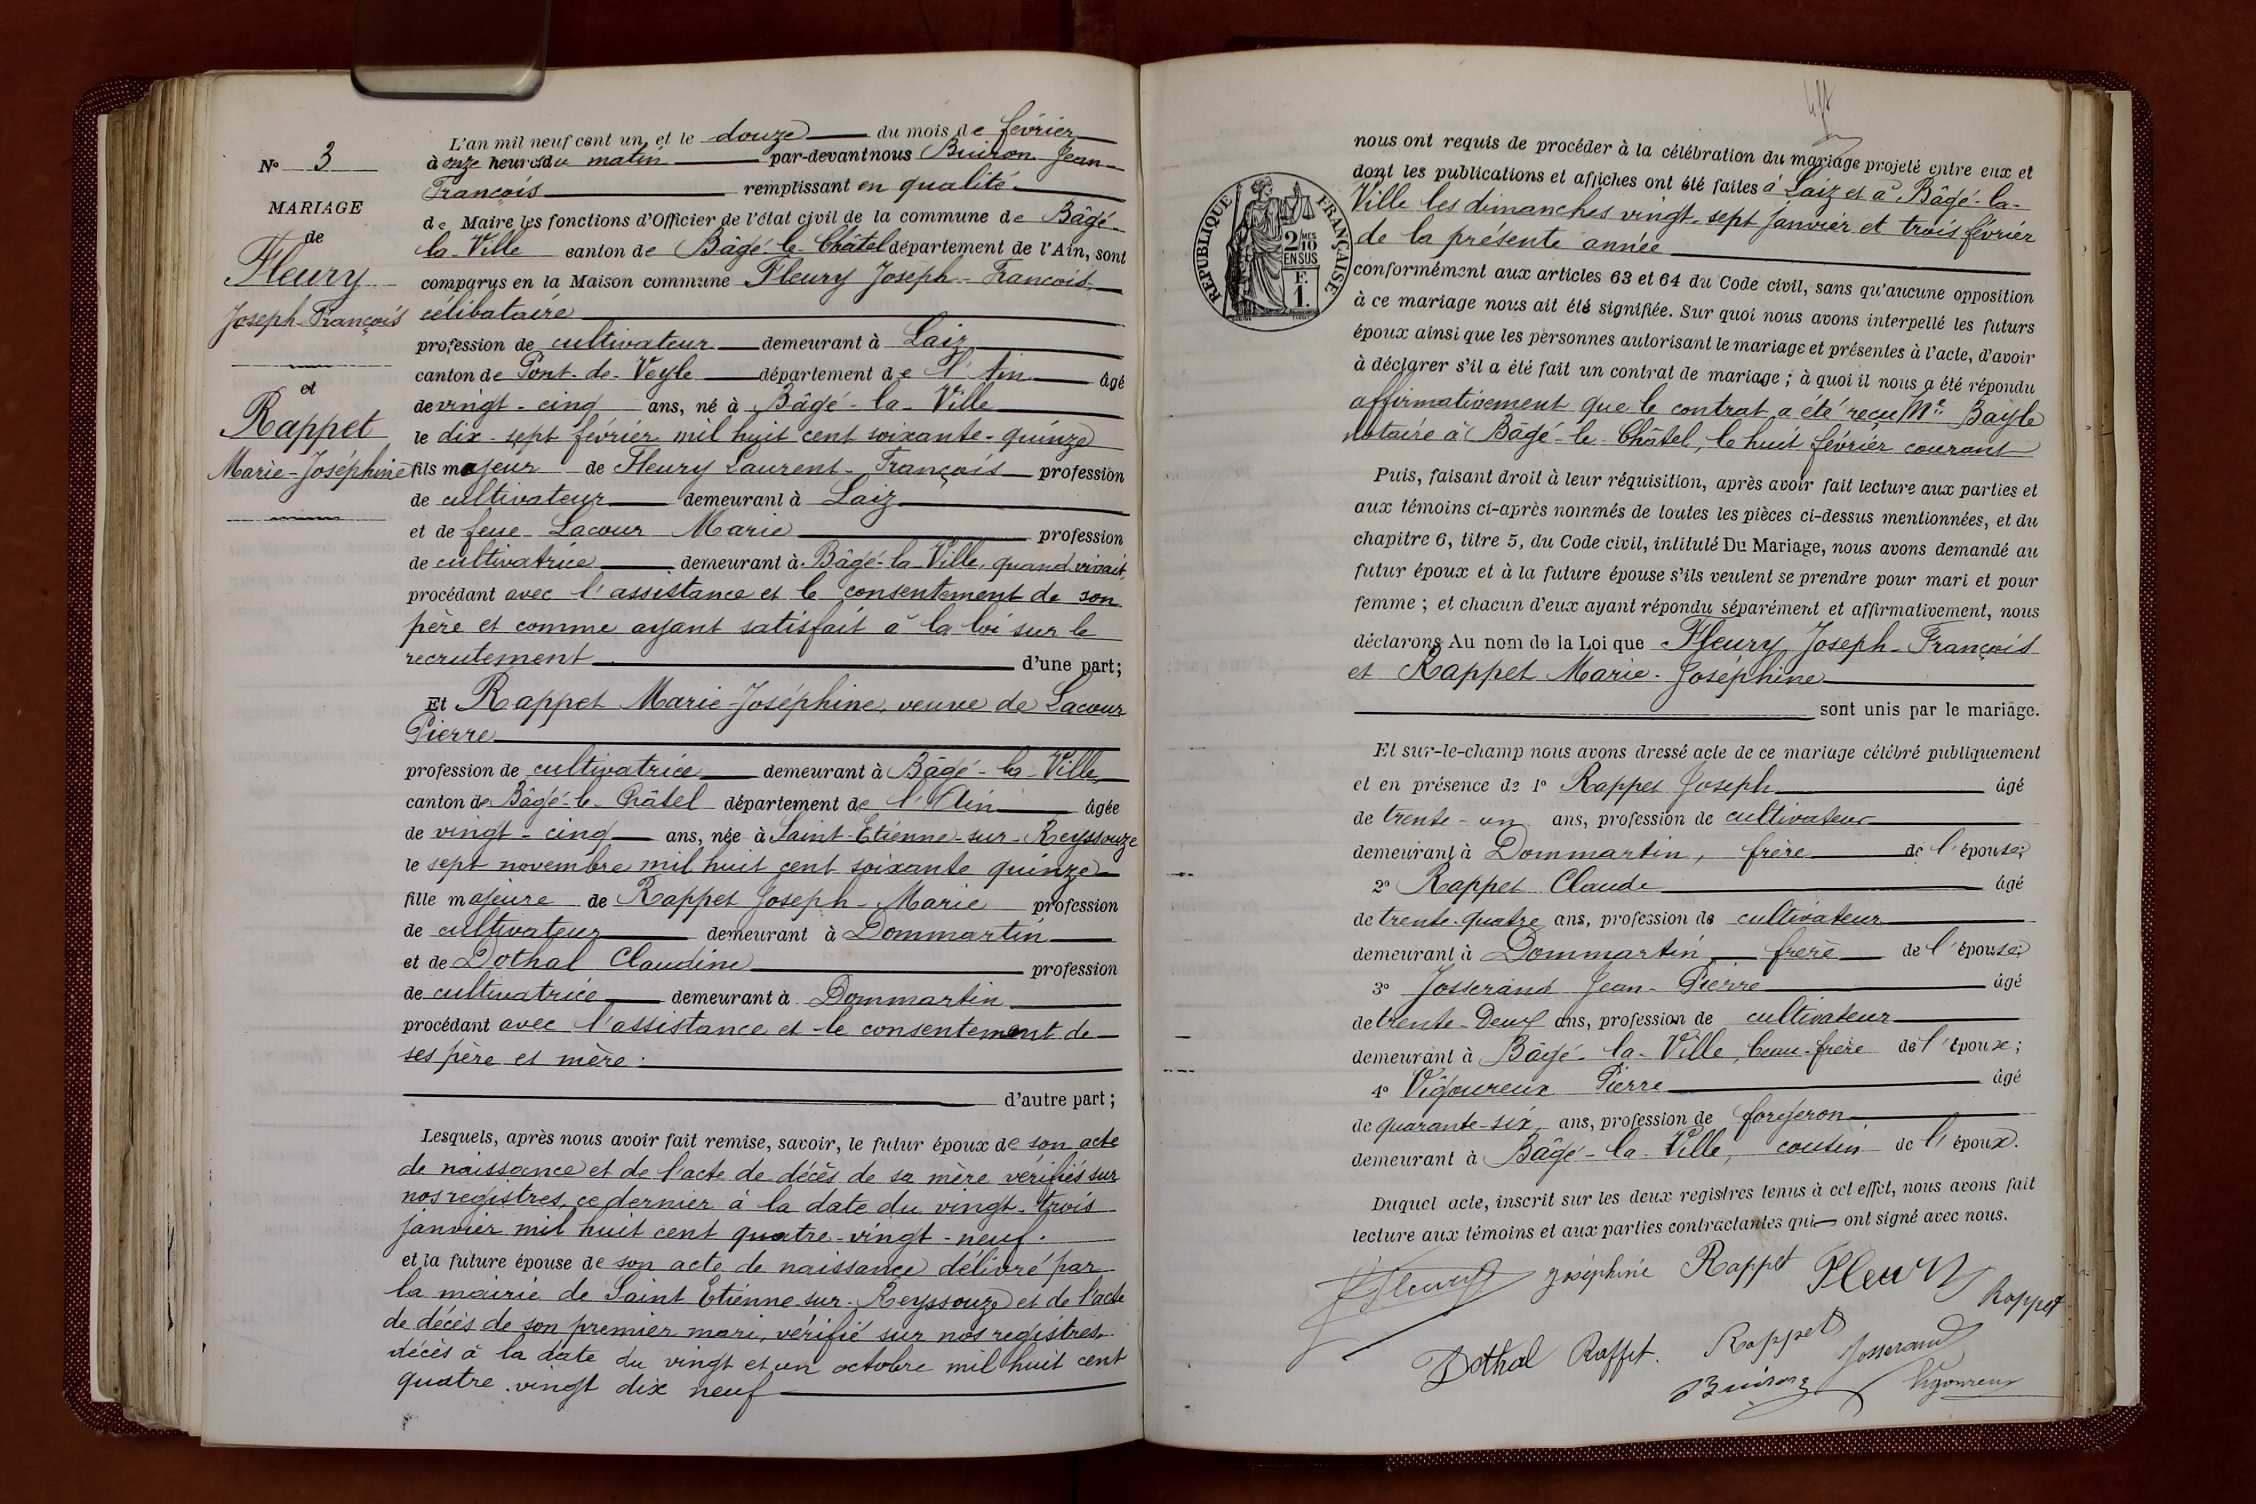 N° 3
MARIAGE
de
Fleury
Joseph-François
et
Rappet
Marie-Joséphine
L'an mil neuf cent un, et le douze du mois de février
à onze heures du matin par-devant nous Buiron Jean
François remplissant en qualité
de Maire les fonctions d'Officier de l'état civil de la commune de Bâgé-
la-Ville canton de Bâgé-le-Châtel département de l'Ain, sont
comparus en la Maison commune Fleury Joseph-François
célibataire
profession de cultivateur demeurant à Laiz
canton de Pont-de-Veyle département de l'Ain âgé
de vingt-cinq ans, né à Bâgé-la-Ville
le dix-sept février mil huit cent soixante-quinze
fils majeur de Fleury Laurent-François profession
de cultivateur demeurant à Laiz
et de feue Lacour Marie profession
de cultivatrice demeurant à Bâgé-la-Ville, quand vivait,
procédant avec l'assistance et le consentement de son
père et comme ayant satisfait à la loi sur le
recrutement d'une part;
Et Rappet Marie-Joséphine, veuve de Lacour
Pierre
profession de cultivatrice demeurant à Bâgé-la-Ville
canton de Bâgé-le-Châtel département de l'Ain âgée
de vingt-cinq ans, née à Saint-Etienne-sur-Reyssouze
le sept novembre mil huit cent soixante quinze
fille majeure de Rappet Joseph-Marie profession
de cultivateur demeurant à Dommartin
et de Dothal Claudine profession
de cultivatrice demeurant à Dommartin
procédant avec l'assistance et le consentement de
ses père et mère.
d'autre part;
Lesquels, après nous avoir fait remise, savoir, le futur époux de son acte
de naissance et de l'acte de décès de sa mère vérifiés sur
nos registres, ce dernier à la date du vingt-trois
janvier mil huit cent quatre-vingt-neuf.
et la future épouse de son acte de naissance délivré par
la mairie de Saint Etienne-sur-Reyssouze et de l'acte
de décès de son premier mari, vérifié sur nos registres
décès à la date du vingt et un octobre mil huit cent
quatre-vingt dix neuf
RÉPUBLIQUE FRANÇAISE
2/10 MES
EN SUS
F.
1.
nous ont requis de procéder à la célébration du mariage projeté entre eux et
dont les publications et affiches ont été faites à Laiz et à Bâgé-la-
Ville les dimanches vingt-sept janvier et trois février
de la présente année
conformément aux articles 63 et 64 du Code civil, sans qu'aucune opposition
à ce mariage nous ait été signifiée. Sur quoi nous avons interpellé les futurs
époux ainsi que les personnes autorisant le mariage et présentes à l'acte, d'avoir
à déclarer s'il a été fait un contrat de mariage; à quoi il nous a été répondu
affirmativement que le contrat a été reçu Me Bayle
notaire à Bâgé-le-Châtel, le huit février courant
Puis, faisant droit à leur réquisition, après avoir fait lecture aux parties et
aux témoins ci-après nommés de toutes les pièces ci-dessus mentionnées, et du
chapitre 6, titre 5, du Code civil, intitulé Du Mariage, nous avons demandé au
futur époux et à la future épouse s'ils veulent se prendre pour mari et pour
femme; et chacun d'eux ayant répondu séparément et affirmativement, nous
déclarons Au nom de la Loi que Fleury Joseph-François
et Rappet Marie-Joséphine
sont unis par le mariage.
Et sur-le-champ nous avons dressé acte de ce mariage célébré publiquement
et en présence de 1° Rappet Joseph âgé
de trente-un ans, profession de cultivateur
demeurant à Dommartin, frère de l'épouse;
2° Rappet Claude âgé
de trente-quatre ans, profession de cultivateur
demeurant à Dommartin frère de l'épouse;
3° Josserand Jean-Pierre âgé
de trente-Deux ans, profession de cultivateur
demeurant à Bâgé-la-Ville, beau-frère de l'époux;
4° Vigoureux Pierre âgé
de quarante-six ans, profession de forgeron
demeurant à Bâgé-la-Ville, cousin de l'époux.
Duquel acte, inscrit sur les deux registres tenus à cet effet, nous avons fait
lecture aux témoins et aux parties contractantes qui ont signé avec nous.
Fleury Joséphine Rappet Fleury Rappet
Dothal Raffet. Rappet Josserand
Buiron Vigoureux